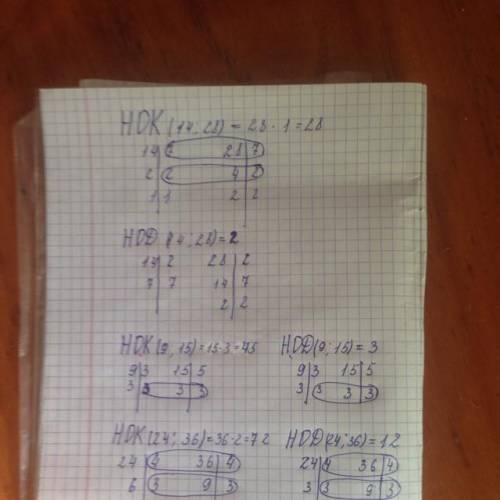 НОК (14; 28) = 28 · 1 = 28
14 | 7 28 | 7
2 | 2 4 | 2
1 | 1 2 | 2
НОD (14; 28) = 2
14 | 2 28 | 2
7 | 7 14 | 7
2 | 2
НОК (9, 15) = 15·3=45 НОD (9; 15) = 3
9 | 3 15 | 5 9 | 3 15 | 5
3 | 3 3 | 3 3 | 3 3 | 3
НОК (24; 36) = 36·2=72 НОD (24; 36) = 12
24 | 4 36 | 4 24 | 4 36 | 4
6 | 3 9 | 3 3 | 3 9 | 3